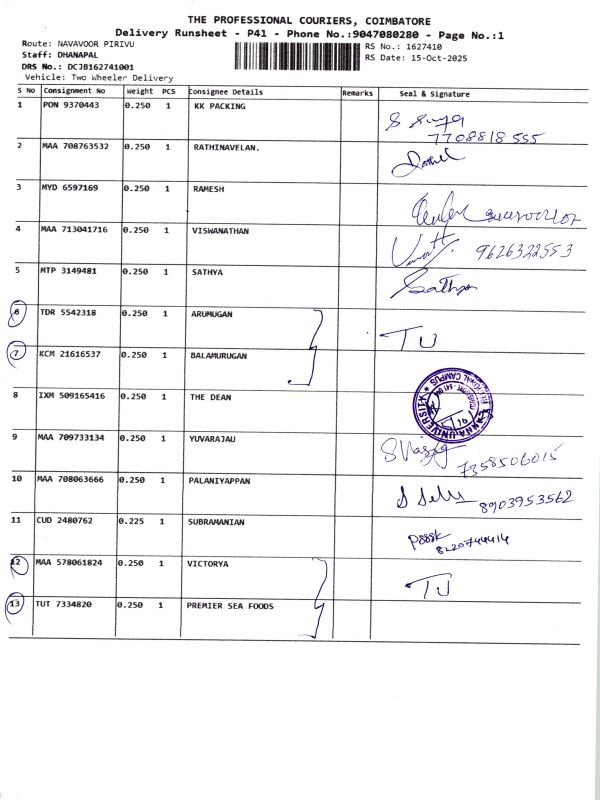 THE PROFESSIONAL COURIERS, COIMBATORE
Delivery Runsheet - P41 - Phone No.:9047080280 - Page No.:1
Route: NAVAVOOR PIRIVU RS No.: 1627410
Staff: DHANAPAL RS Date: 15-Oct-2025
DRS No.: DCJB162741001
Vehicle: Two Wheeler Delivery
S No Consignment No Weight PCS Consignee Details Remarks Seal & Signature
1 PON 9370443 0.250 1 KK PACKING
7708818555
2 MAA 708763532 0.250 1 RATHINAVELAN.
3 MYD 6597169 0.250 1 RAMESH
4 MAA 713041716 0.250 1 VISWANATHAN
9626322553
5 MTP 3149481 0.250 1 SATHYA
Sathya
6 TDR 5542318 0.250 1 ARUMUGAN
TU
7 KCM 21616537 0.250 1 BALAMURUGAN
8 IXM 509165416 0.250 1 THE DEAN
ANNA UNIVERSITY REGIONAL CAMPUS
9 MAA 709733134 0.250 1 YUVARAJAU
7358506015
10 MAA 708063666 0.250 1 PALANIYAPPAN
8903953562
11 CUD 2480762 0.225 1 SUBRAMANIAN
8220744414
12 MAA 578061824 0.250 1 VICTORYA
TU
13 TUT 7334820 0.250 1 PREMIER SEA FOODS